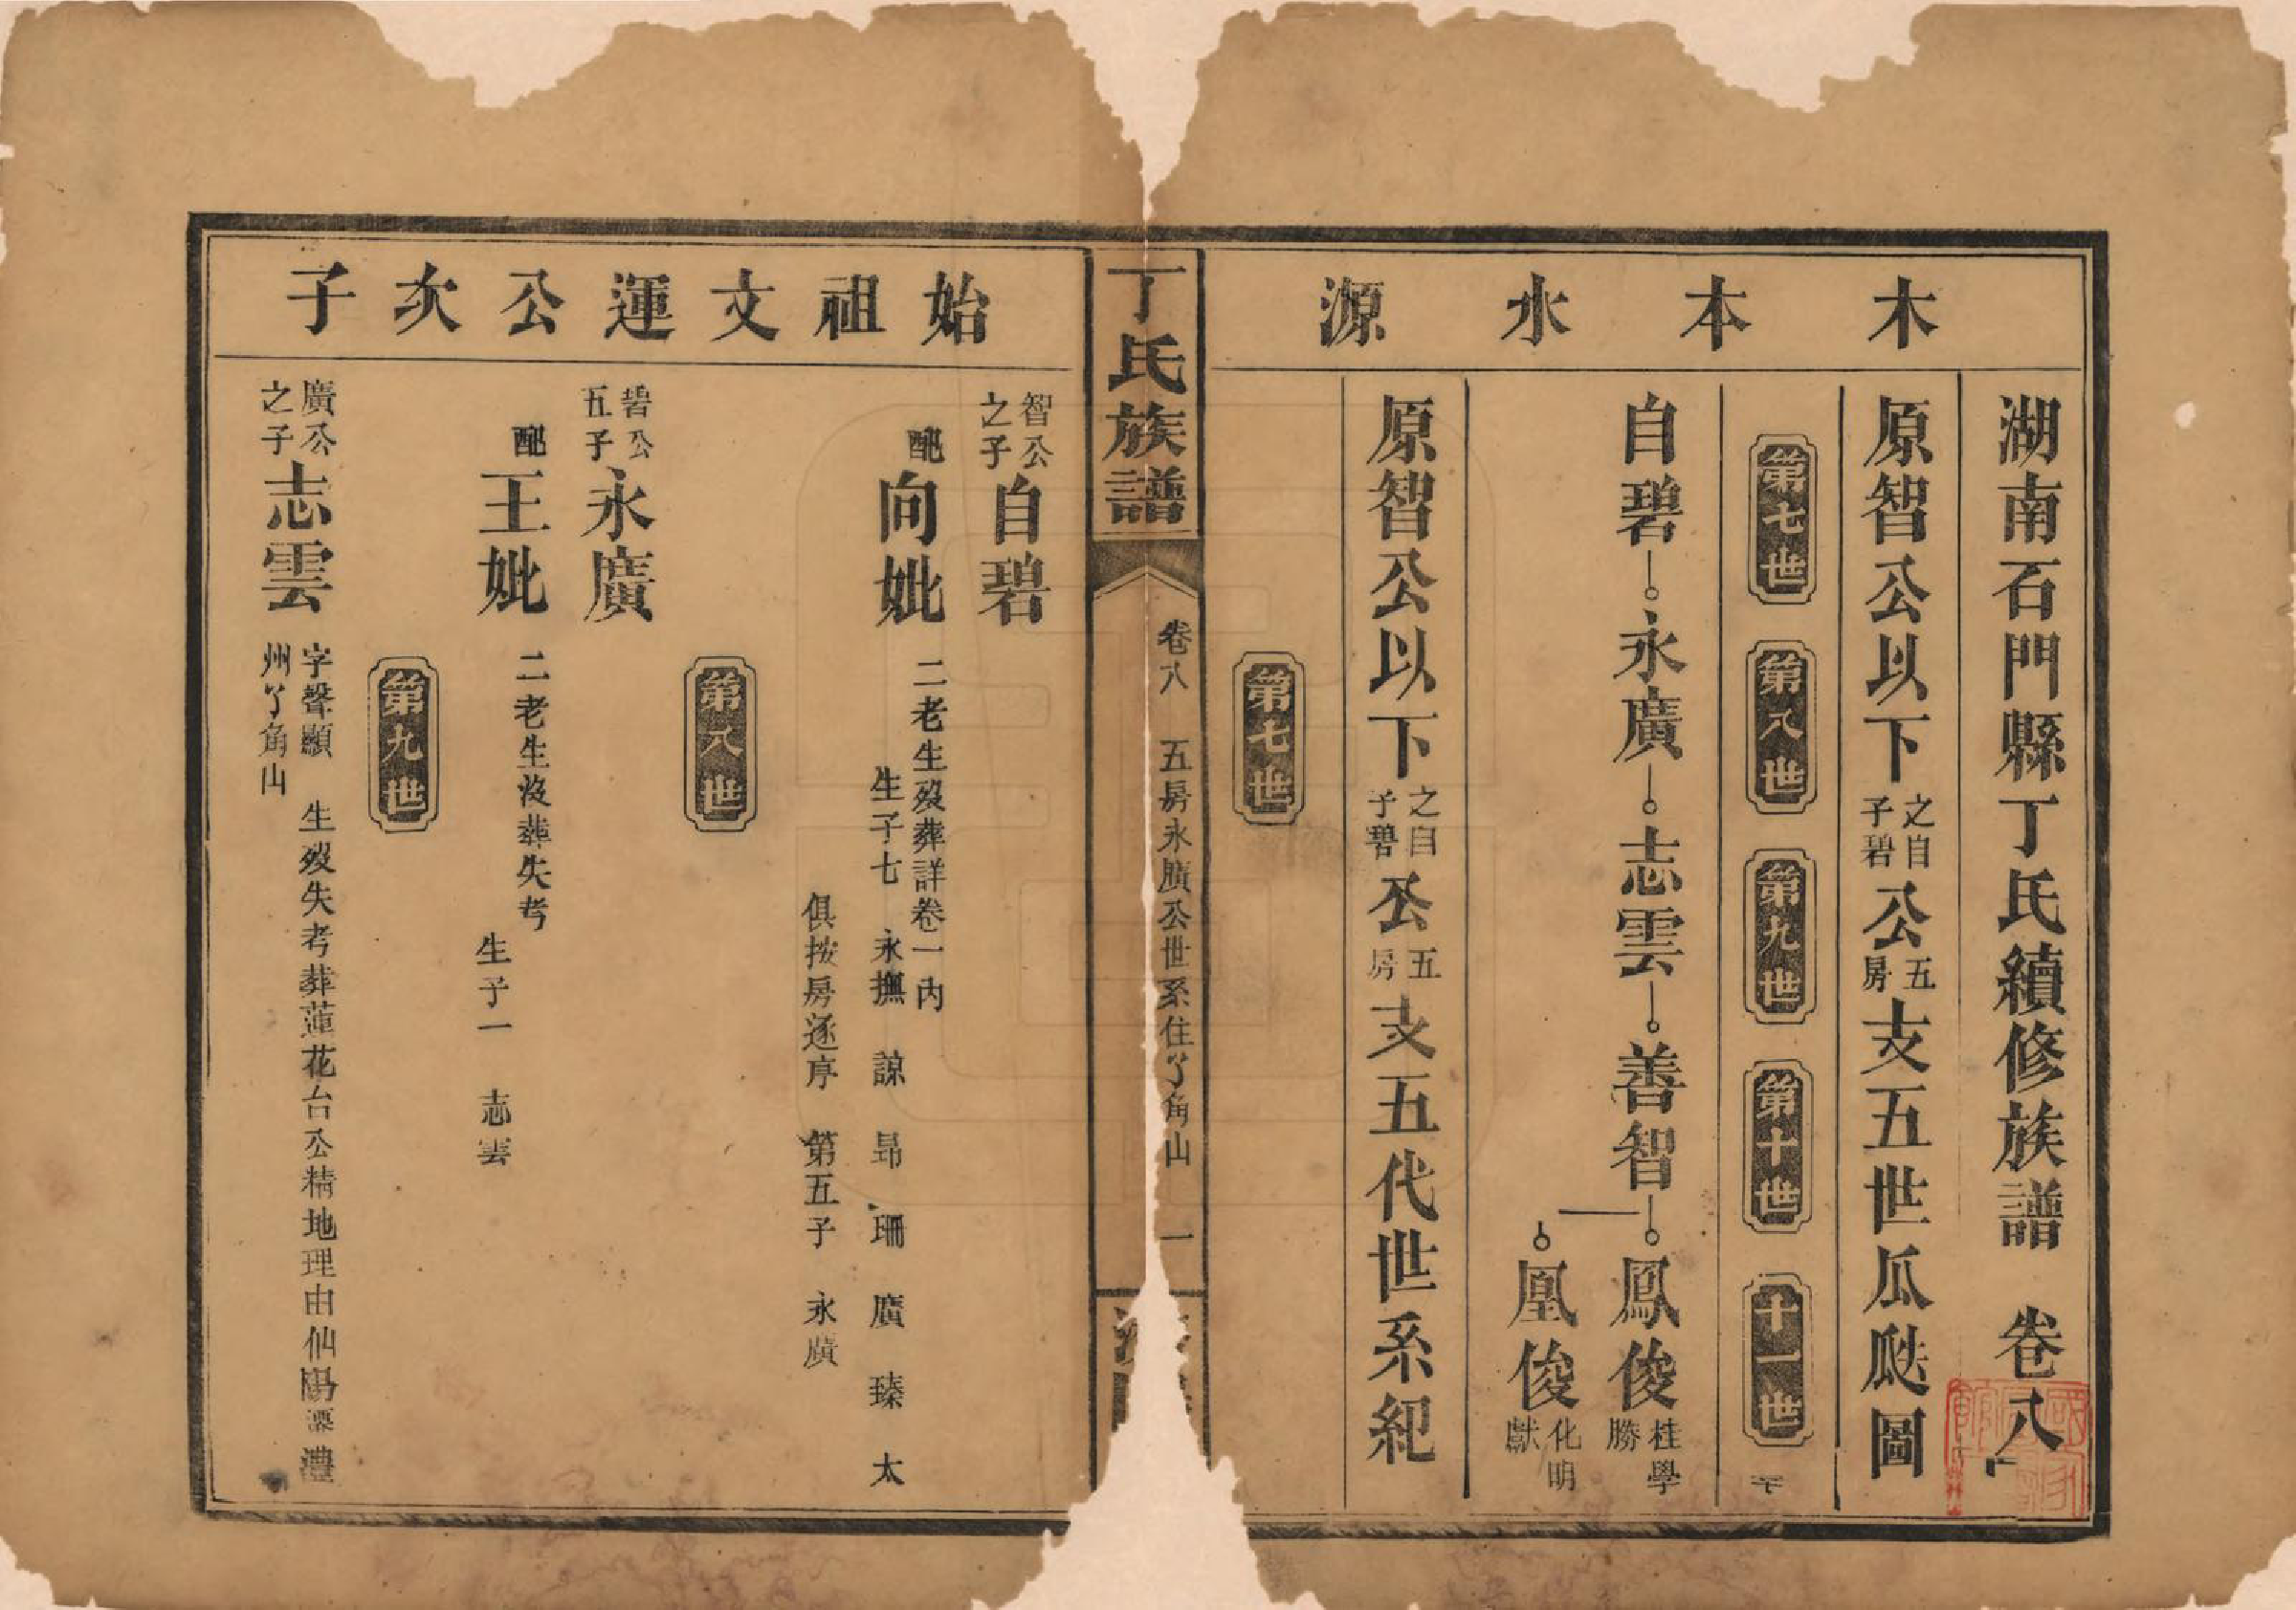 木本水源
湖南石門縣丁氏續修族譜 卷八
原智公以下之子自碧公五房支五世瓜瓞圖
第七世 第八世 第九世 第十世 十一世
自碧 永廣 志雲 善智 鳳俊 桂學 勝
凰俊 化明 獻
原智公以下之子自碧公五房支五代世系紀
第七世
丁氏族譜 卷八 五房永廣公世系住丫角山 一
始祖文運公次子
智公之子 自碧
配 向妣 二老生歿葬詳卷一內
生子七 永撫 諒 昻 珊 廣 臻 太
俱按房逐序 第五子 永廣
第八世
碧公五子 永廣
配 王妣 二老生沒葬失考
生子一 志雲
第九世
廣公之子 志雲 字聲顯 生歿失考葬蓮花台公精地理由仙陽潭灃
州丫角山